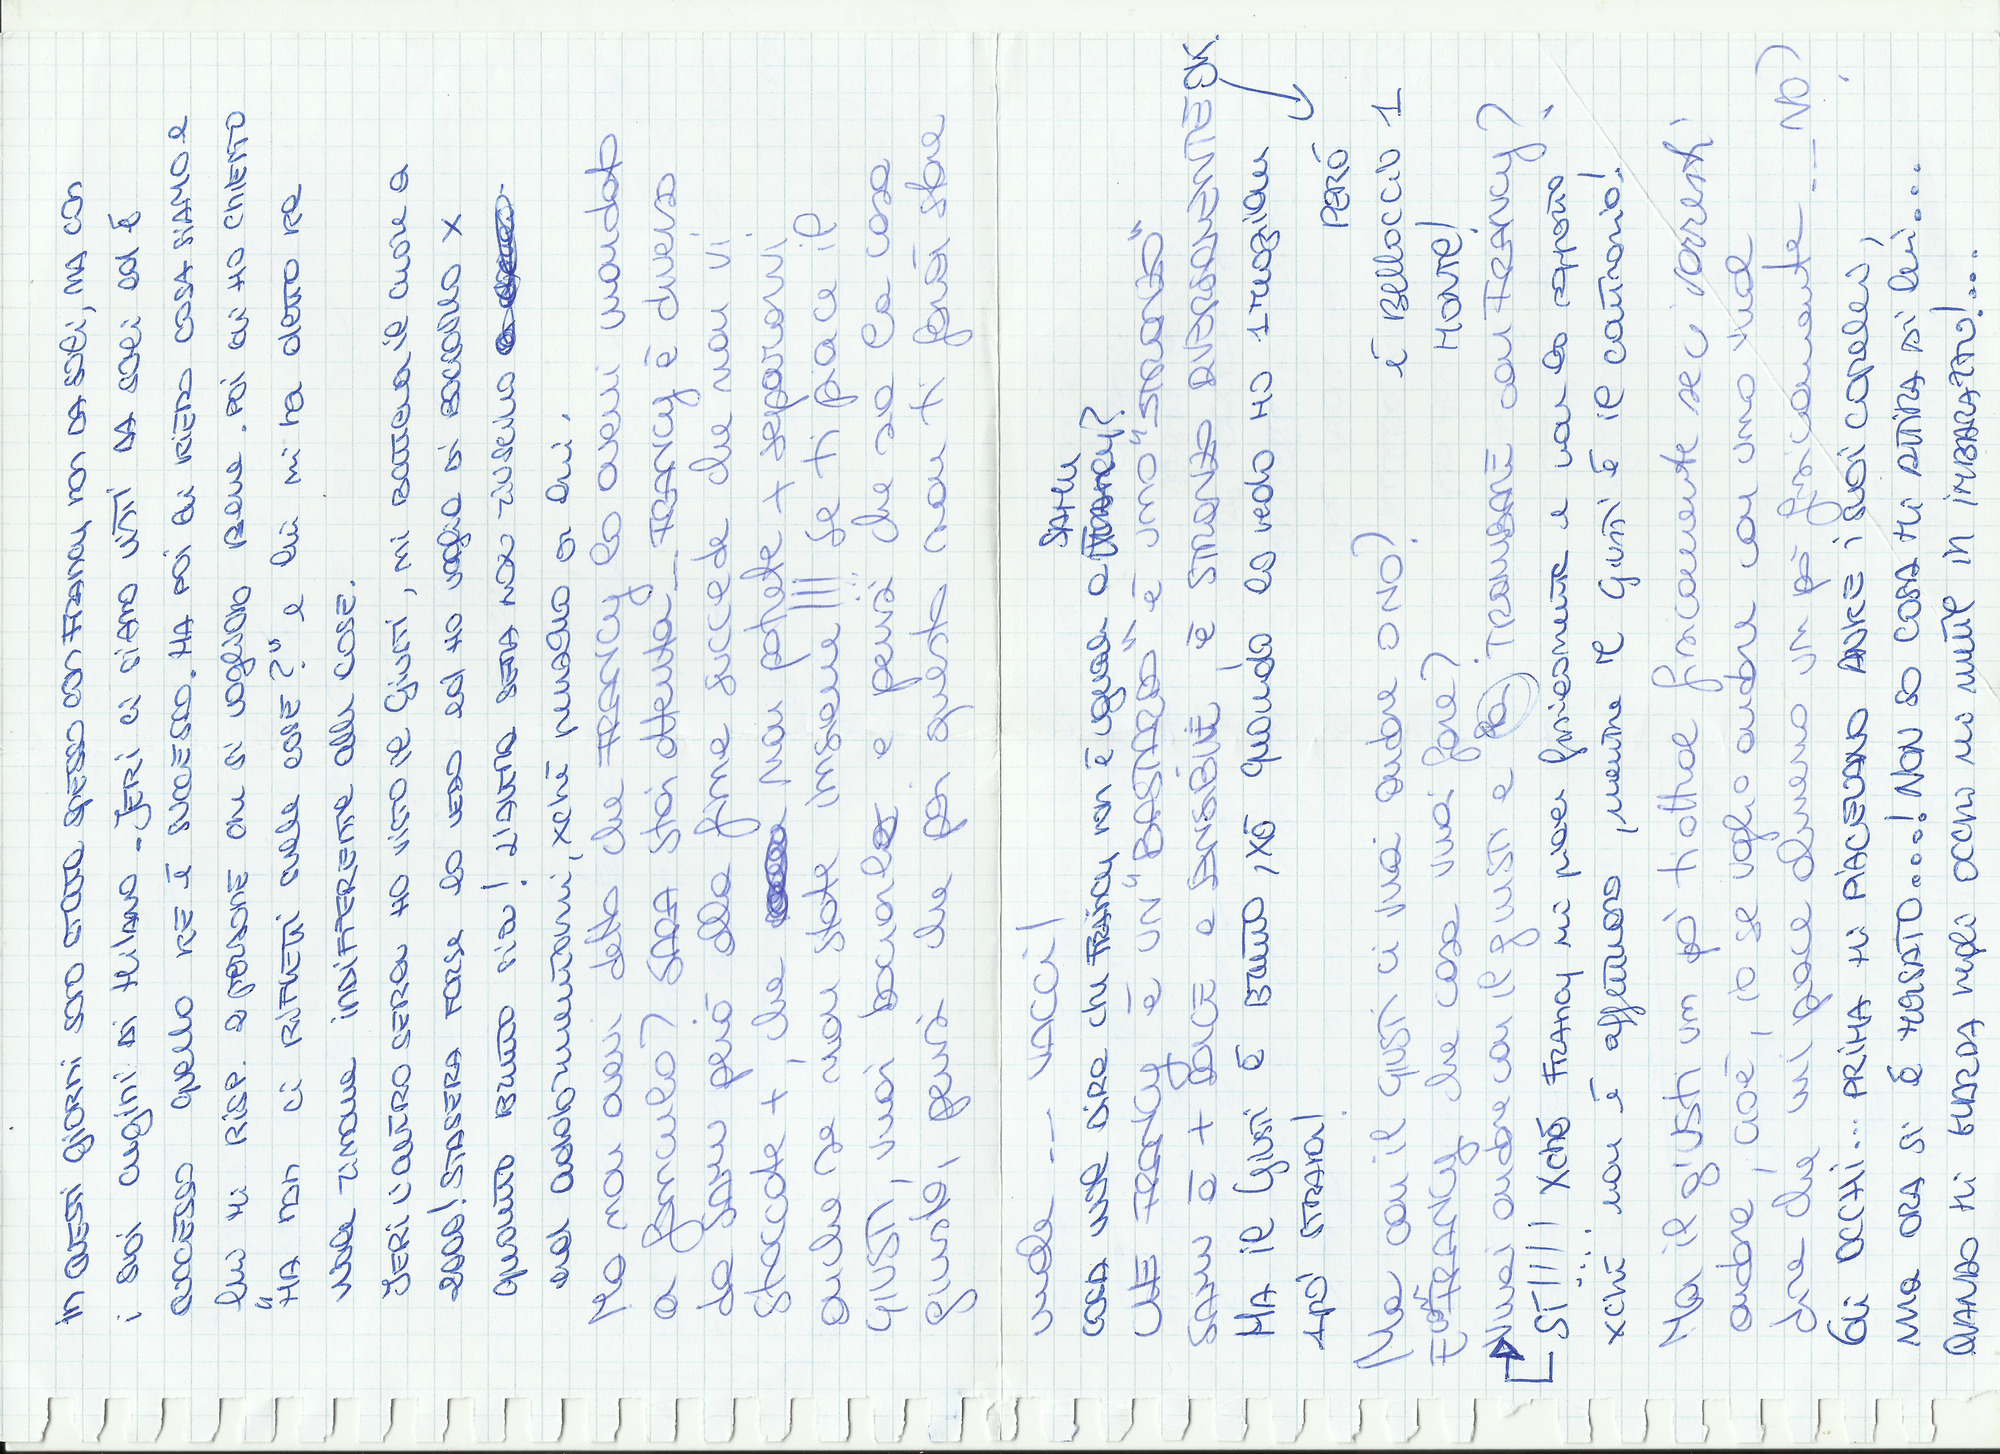 in questi giorni sono stata spesso con Francy non da soli, ma con
i suoi cugini di Milano. Ieri ci siamo visti da soli ed è
successo quello che è successo. Ma poi gli chiedo cosa siamo e
lui mi risp. 2 persone che si vogliono bene. Poi gli ho chiesto
"Ma non ci rifletti sulle cose?" e lui mi ha detto che
vuole rimanere indifferente alle cose.
Ieri l'altro sera ho visto il Giusti, mi batteva il cuore a
2000! Stasera forse lo vedo ed ho voglia di baciarlo x
quanto brutto sia! L'altra sera non riuscivo
ad addormentarmi, xchè pensavo a lui.
Ma non avevi detto che Francy lo avevi mandato
a fanculo? Sara stai attenta... Francy è diverso
da Samu però alla fine succede che non vi
staccate +, che non potete + separarvi
anche se non state insieme!!! Se ti piace il
Giusti, vuoi baciarlo e pensi che sia la cosa
giusta, pensa che poi questo non ti farà stare
male... VACCI!
cosa vuol dire che Francy non è uguale a Samu?
che Francy è un "BASTARDO" è uno "STRONZO"
Samu è + dolce e sensibile è stronzo diversamente OK.
Ma il Giusti è brutto, xò quando lo vedo ho 1 reazione
troppo strana!
PERÒ
è BELLOCCIO 1
MONTE!
Ma con il Giusti ci vuoi andare o NO?
E con Francy che cosa vuoi fare?
Vuoi andare con il Giusti e poi TROMBARE con Francy?
SI!!!! Xchè Francy mi piace fisicamente e non lo sopporto
xchè non è affettuoso, mentre il Giusti è il contrario!
Ma il giusti un pò ti attrae fisicamente se ci vorresti
andare, cioè, io se voglio andare con uno vuol
dire che mi piace almeno un pò fisicamente... NO?
Gli occhi... prima mi piacevano anke i suoi capelli,
ma ora si è rasato....! Non so cosa mi attira di lui....
Quando mi guarda negli occhi mi mette in imbarazzo!...